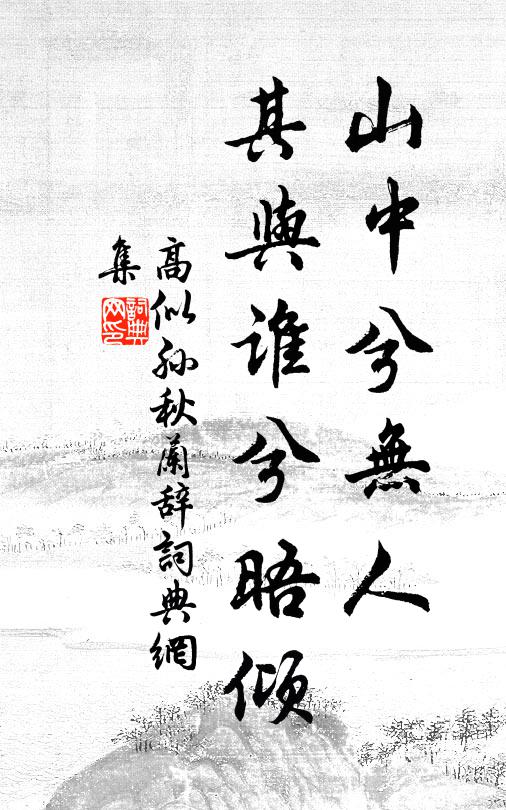 山中兮無人
其與誰兮晤傾
高似孫秋蘭辞詞典網
集
詞典網印